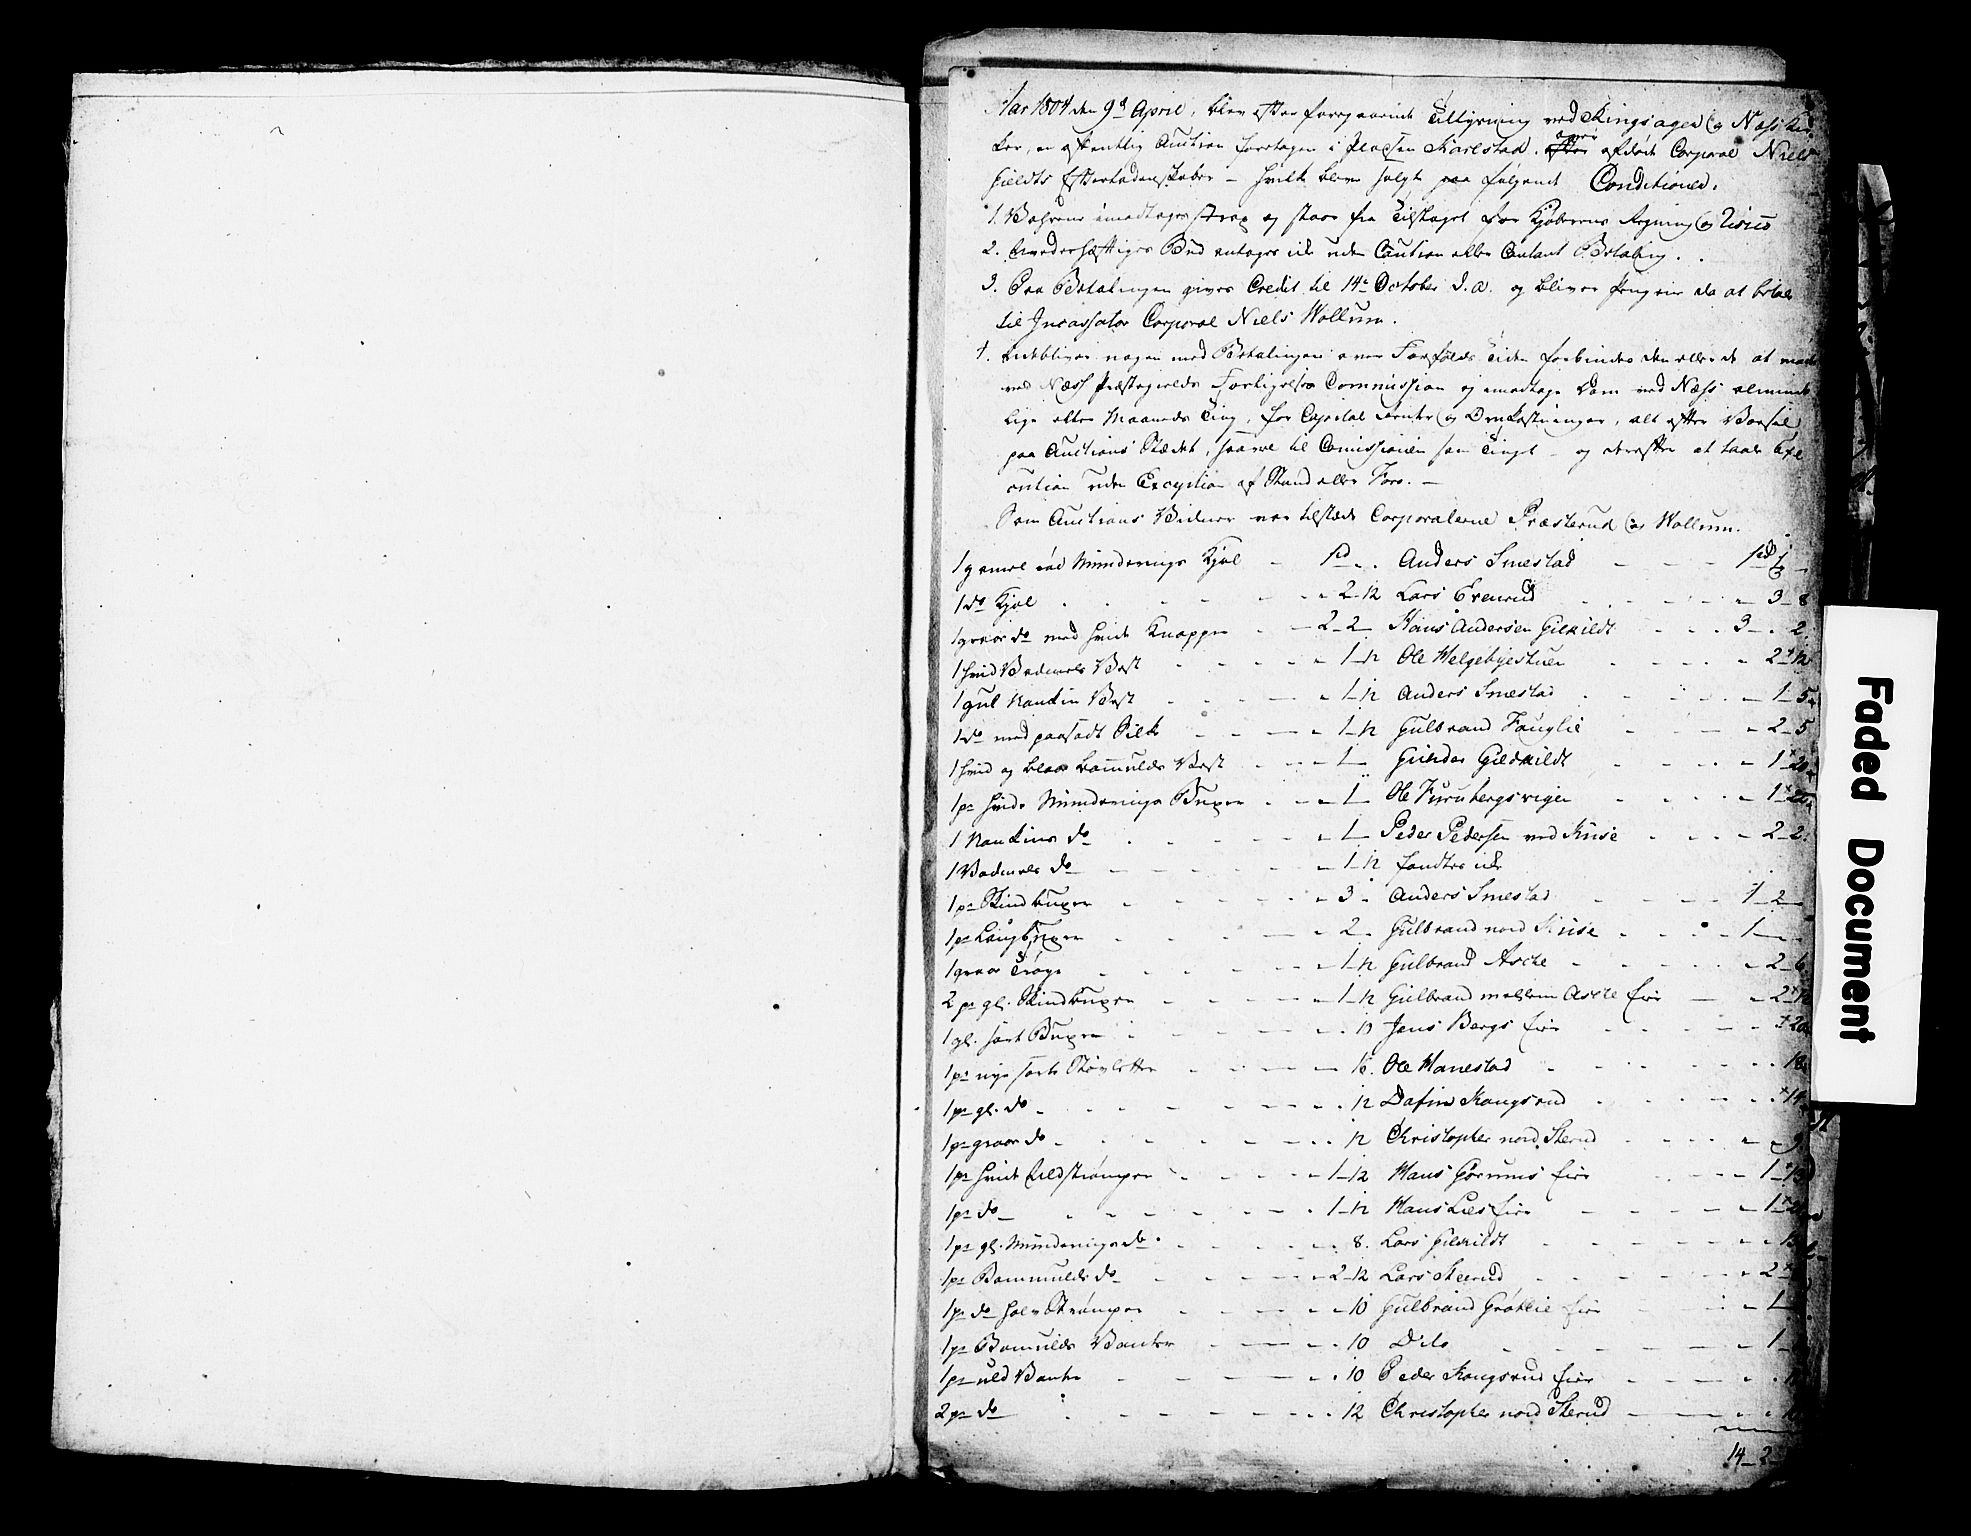 Aar 1804 den 9d April, blev efter foregaaende Tillysning ved Ringsager og Næss Kir
ker, en offentlig Auction foretagen i Pladsen Karlstad. over afdøde Corporal Niels
Hieldts Efterladenskaber – hvilke blev solgt paa følgende Conditioner.
1. Vahrene imodtages strax og staar fra Tilslaget for Kjøberens Regning og Risico
2. Uvederhæftiges Bud antages ikke uden Caution eller Contant Betaling.
3. Paa Betalingen gives Credit til 14de October d. a. og bliver Pengene da at betale
til Incassator Corporal Niels Wollum.
4. Udebliver nogen med Betalingen over Forfalds Tiden forbindes den eller de at møde
ved Næss Præstegields Forligelses Commission og imodtage Dom ved Næss almind
lige eller Maaneds Ting, for Capital Renter og Omkostninger, alt efter Varsel
paa Auctions Stædet, saavel til Comissionen som Tinget – og derefter at taale Exe
cution uden Exception af Stand eller Foro. –
Som Auctions Vidner var tilstæde Corporalerne Præsterud og Wollum.
1 gamel rød Munderings Kjol – Anders Smestad
1 do Kjol 2 – 12 Lars Evenrud 3 – 8
1 graae do med hvide Knapper – 2 – 2 – Hans Andersen Gilkildt 3 – 2
1 hvid Vadmels Vest 1 – 12 Ole Helgebyestuen 2 – 12
1 gul Nankin Vest 1 – 12 Anders Smestad 1 – 5
1 do med paasadt Silke 1 – 12 Gulbrand Fauglie 2 – 5
1 hvid og blaae bomulds Vest 1 – Gunder Gilkildt 1 – 20
1 pr hvide Munderings Buxer 1 – Ole Furubergsvigen 1
1 Nankins do 1 – Peder Pedersen ved Kruse 2 – 2
1 Vadmels do 1 – 12 fandtes ikke
1 pr Skindbuxer 3 – Anders Smestad 1 – 2 –
1 pr Langbuxer 2 – Gulbrand nord Kruse 1 –
1 graae Trøye 1 – 12 Gulbrand Ascke 2 – 6
2 pr gl. Skindbuxer 1 – 12 Gulbrand mellem Ascke eier 2
1 gl. sort Buxer 10 Jens Bergs eier 20
1 pr nye sorte Støvletter 16. Ole Hanestad 18
1 pr gl. do 12 Dafin Kongsrud 14
1 pr graae do 12 Christopher nord Sterud 9
1 pr hvide Uldstrømper 1 – 12 Hans Gørunns eier 1
1 pr do 1 – 12 Hans Lies eier 1
1 pr gl. Munderings do 8. Lars Gilkildt
1 pr Bommulds do 2 – 12 Lars Sterud 2
1 pr do halv Strømper 10 Gulbrand Grøtlie eier 1
1 pr Bomulds Vanter 10 Dito 1
1 pr uld Vanter 10 Peder Kongsrud eier
2 pr do 12 Christopher nord Sterud
14 – 2
Faded Document